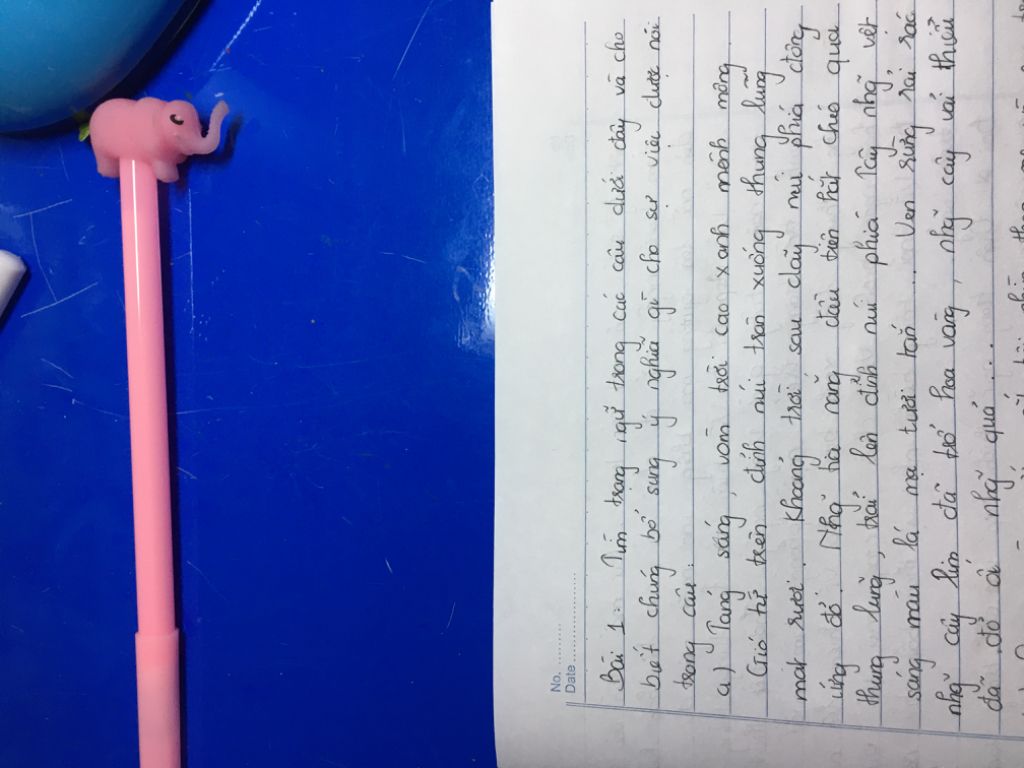 No. ............
Date ......................
Bài 1: Tìm trạng ngữ trong các câu dưới đây và cho
biết chúng bổ sung ý nghĩa gì cho sự việc được nói
trong câu:
a) Tảng sáng, vòm trời cao xanh mênh mông.
Gió từ trên đỉnh núi tràn xuống thung lũng
mát rượi. Khoảng trời sau dãy núi phía đông
ửng đỏ. Những tia nắng đầu tiên hắt chéo qua
thung lũng, trải lên đỉnh núi phía Tây những vệt
sáng màu lá mạ tươi tắn... Ven rừng rải rác
những cây lim đã trổ hoa vàng, những cây vải thiều
đã đỏ ối những quả....